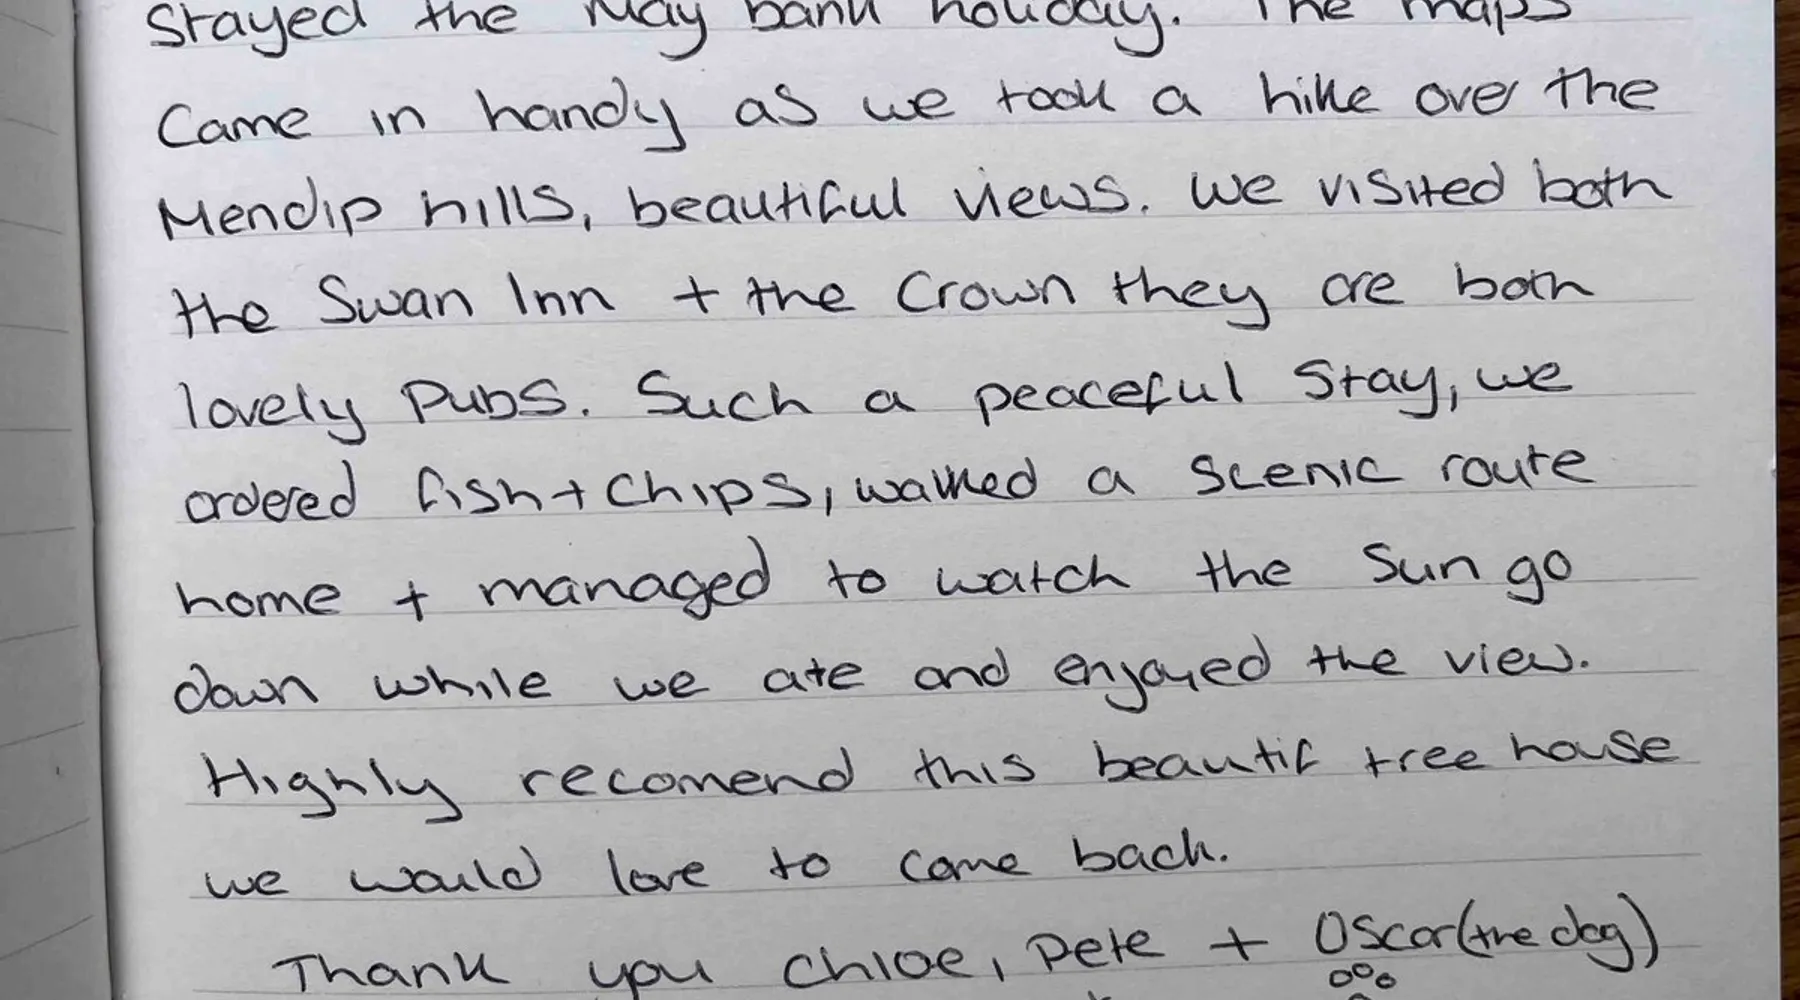 Stayed the May bank holiday. The maps
Came in handy as we took a hike over the
Mendip hills, beautiful views. We visited both
the Swan Inn + the Crown they are both
lovely Pubs. Such a peaceful Stay, we
ordered fish + Chips, walked a Scenic route
home + managed to watch the Sun go
down while we ate and enjoyed the view.
Highly recomend this beautif tree house
we would love to come back.
Thank you Chloe, Pete + Oscar (the dog)